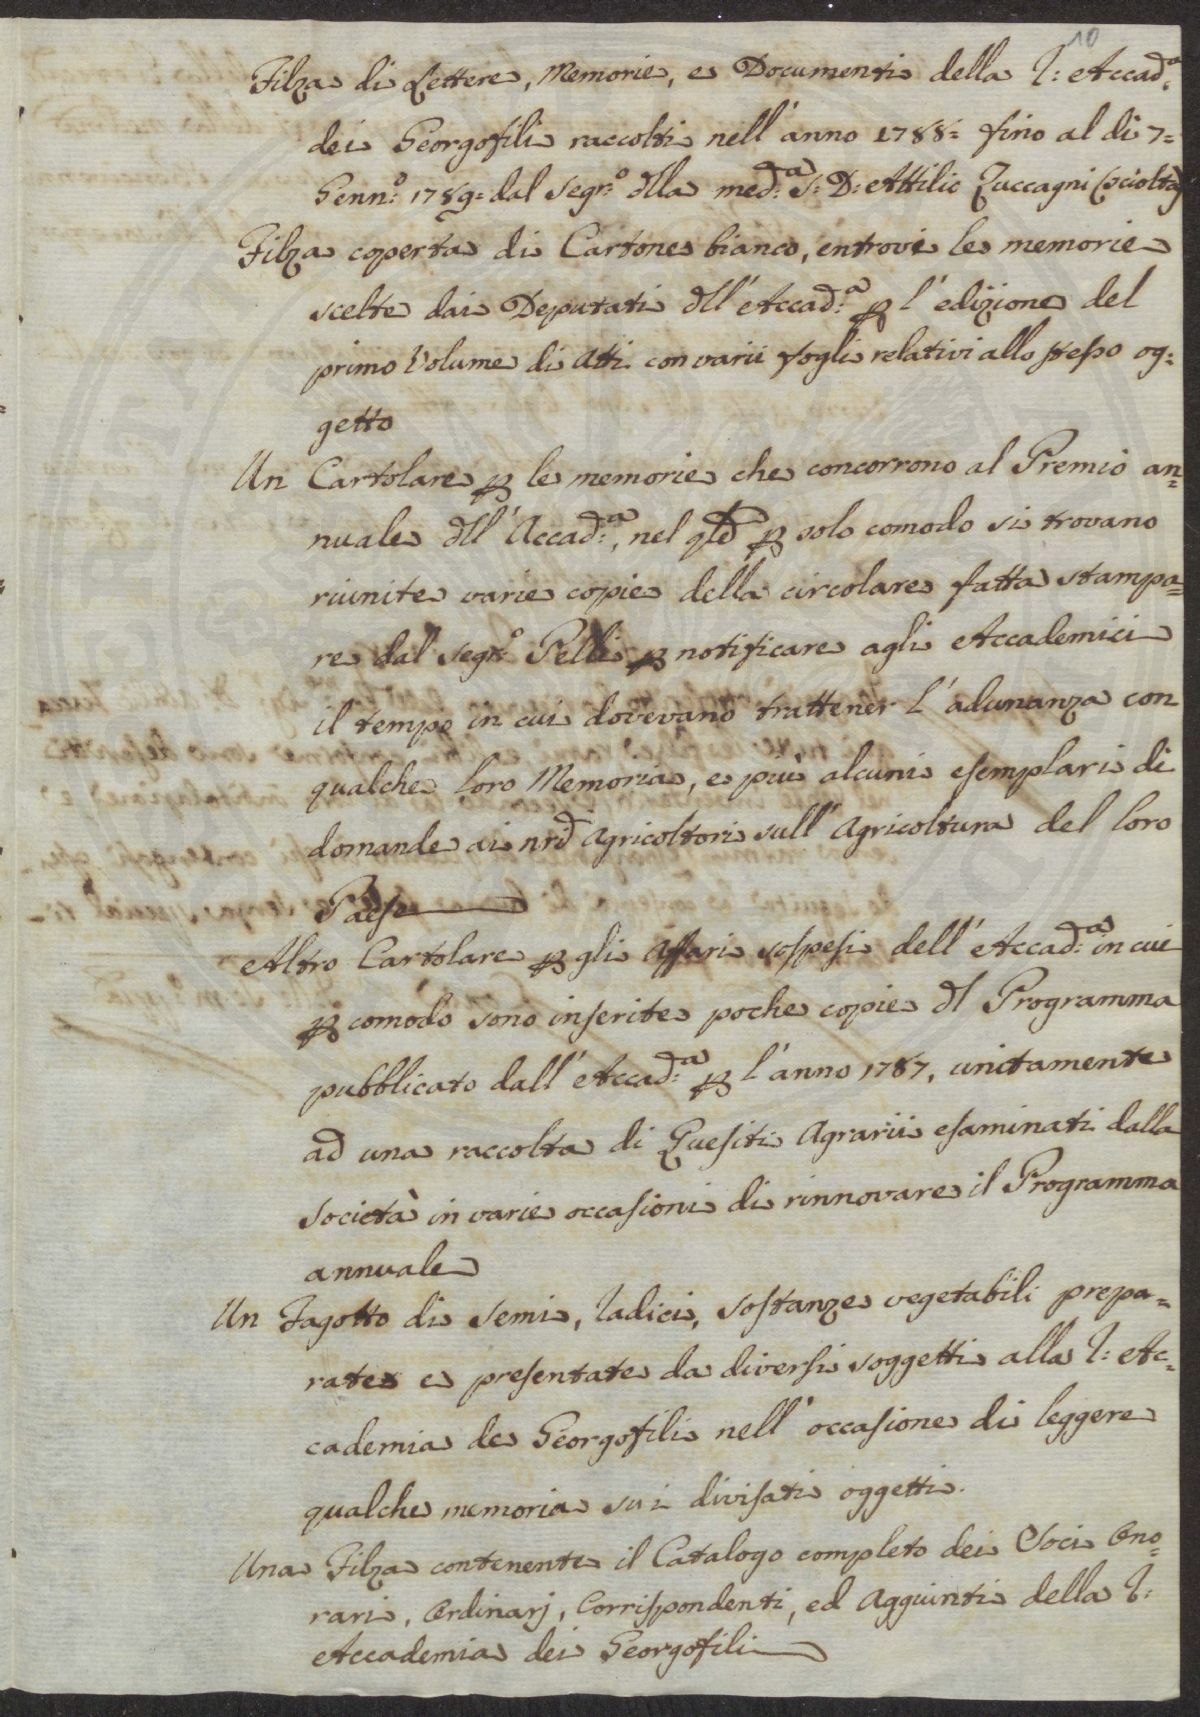 10
Filza di Lettere, Memorie, e Documenti della R: Accad:a
dei Georgofili raccolti nell'anno 1788= fino al di 7=
Genn:o 1789= dal Segr:o dlla med:a S: D: Attilio Zuccagni (sciolta)
Filza coperta di Cartone bianco, entrovi le memorie
scelte dai Deputati dll'Accad:a p l'edizione del
primo Volume di Atti con varii fogli relativi allo stesso og=
getto
Un Cartolare p le memorie che concorrono al Premio an=
nuale dll'Accad:a, nel qle p solo comodo si trovano
riunite varie copie della circolare fatta stampa=
re dal Segr:o Pelli p notificare agli Accademici
il tempo in cui dovevano trattener l'adunanza con
qualche loro Memoria, e più alcuni esemplari di
domande ai nri Agricoltori sull'Agricoltura del loro
Paese
Altro Cartolare p gli Affari sospesi dell'Accad:a in cui
p comodo sono inserite poche copie dl Programma
pubblicato dall'Accad:a p l'anno 1787, unitamente
ad una raccolta di Quesiti Agrarii esaminati dalla
Società in varie occasioni di rinnovare il Programma
annuale
Un Fagotto di semi, radici, sostanze vegetabili prepa=
rate e presentate da diversi soggetti alla R: Ac=
cademia de Georgofili nell'occasione di leggere
qualche memoria su i divisati oggetti.
Una Filza contenente il Catalogo completo dei Soci Ono=
rari, Ordinarj, Corrispondenti, ed Aggiunti della R:
Accademia dei Georgofili